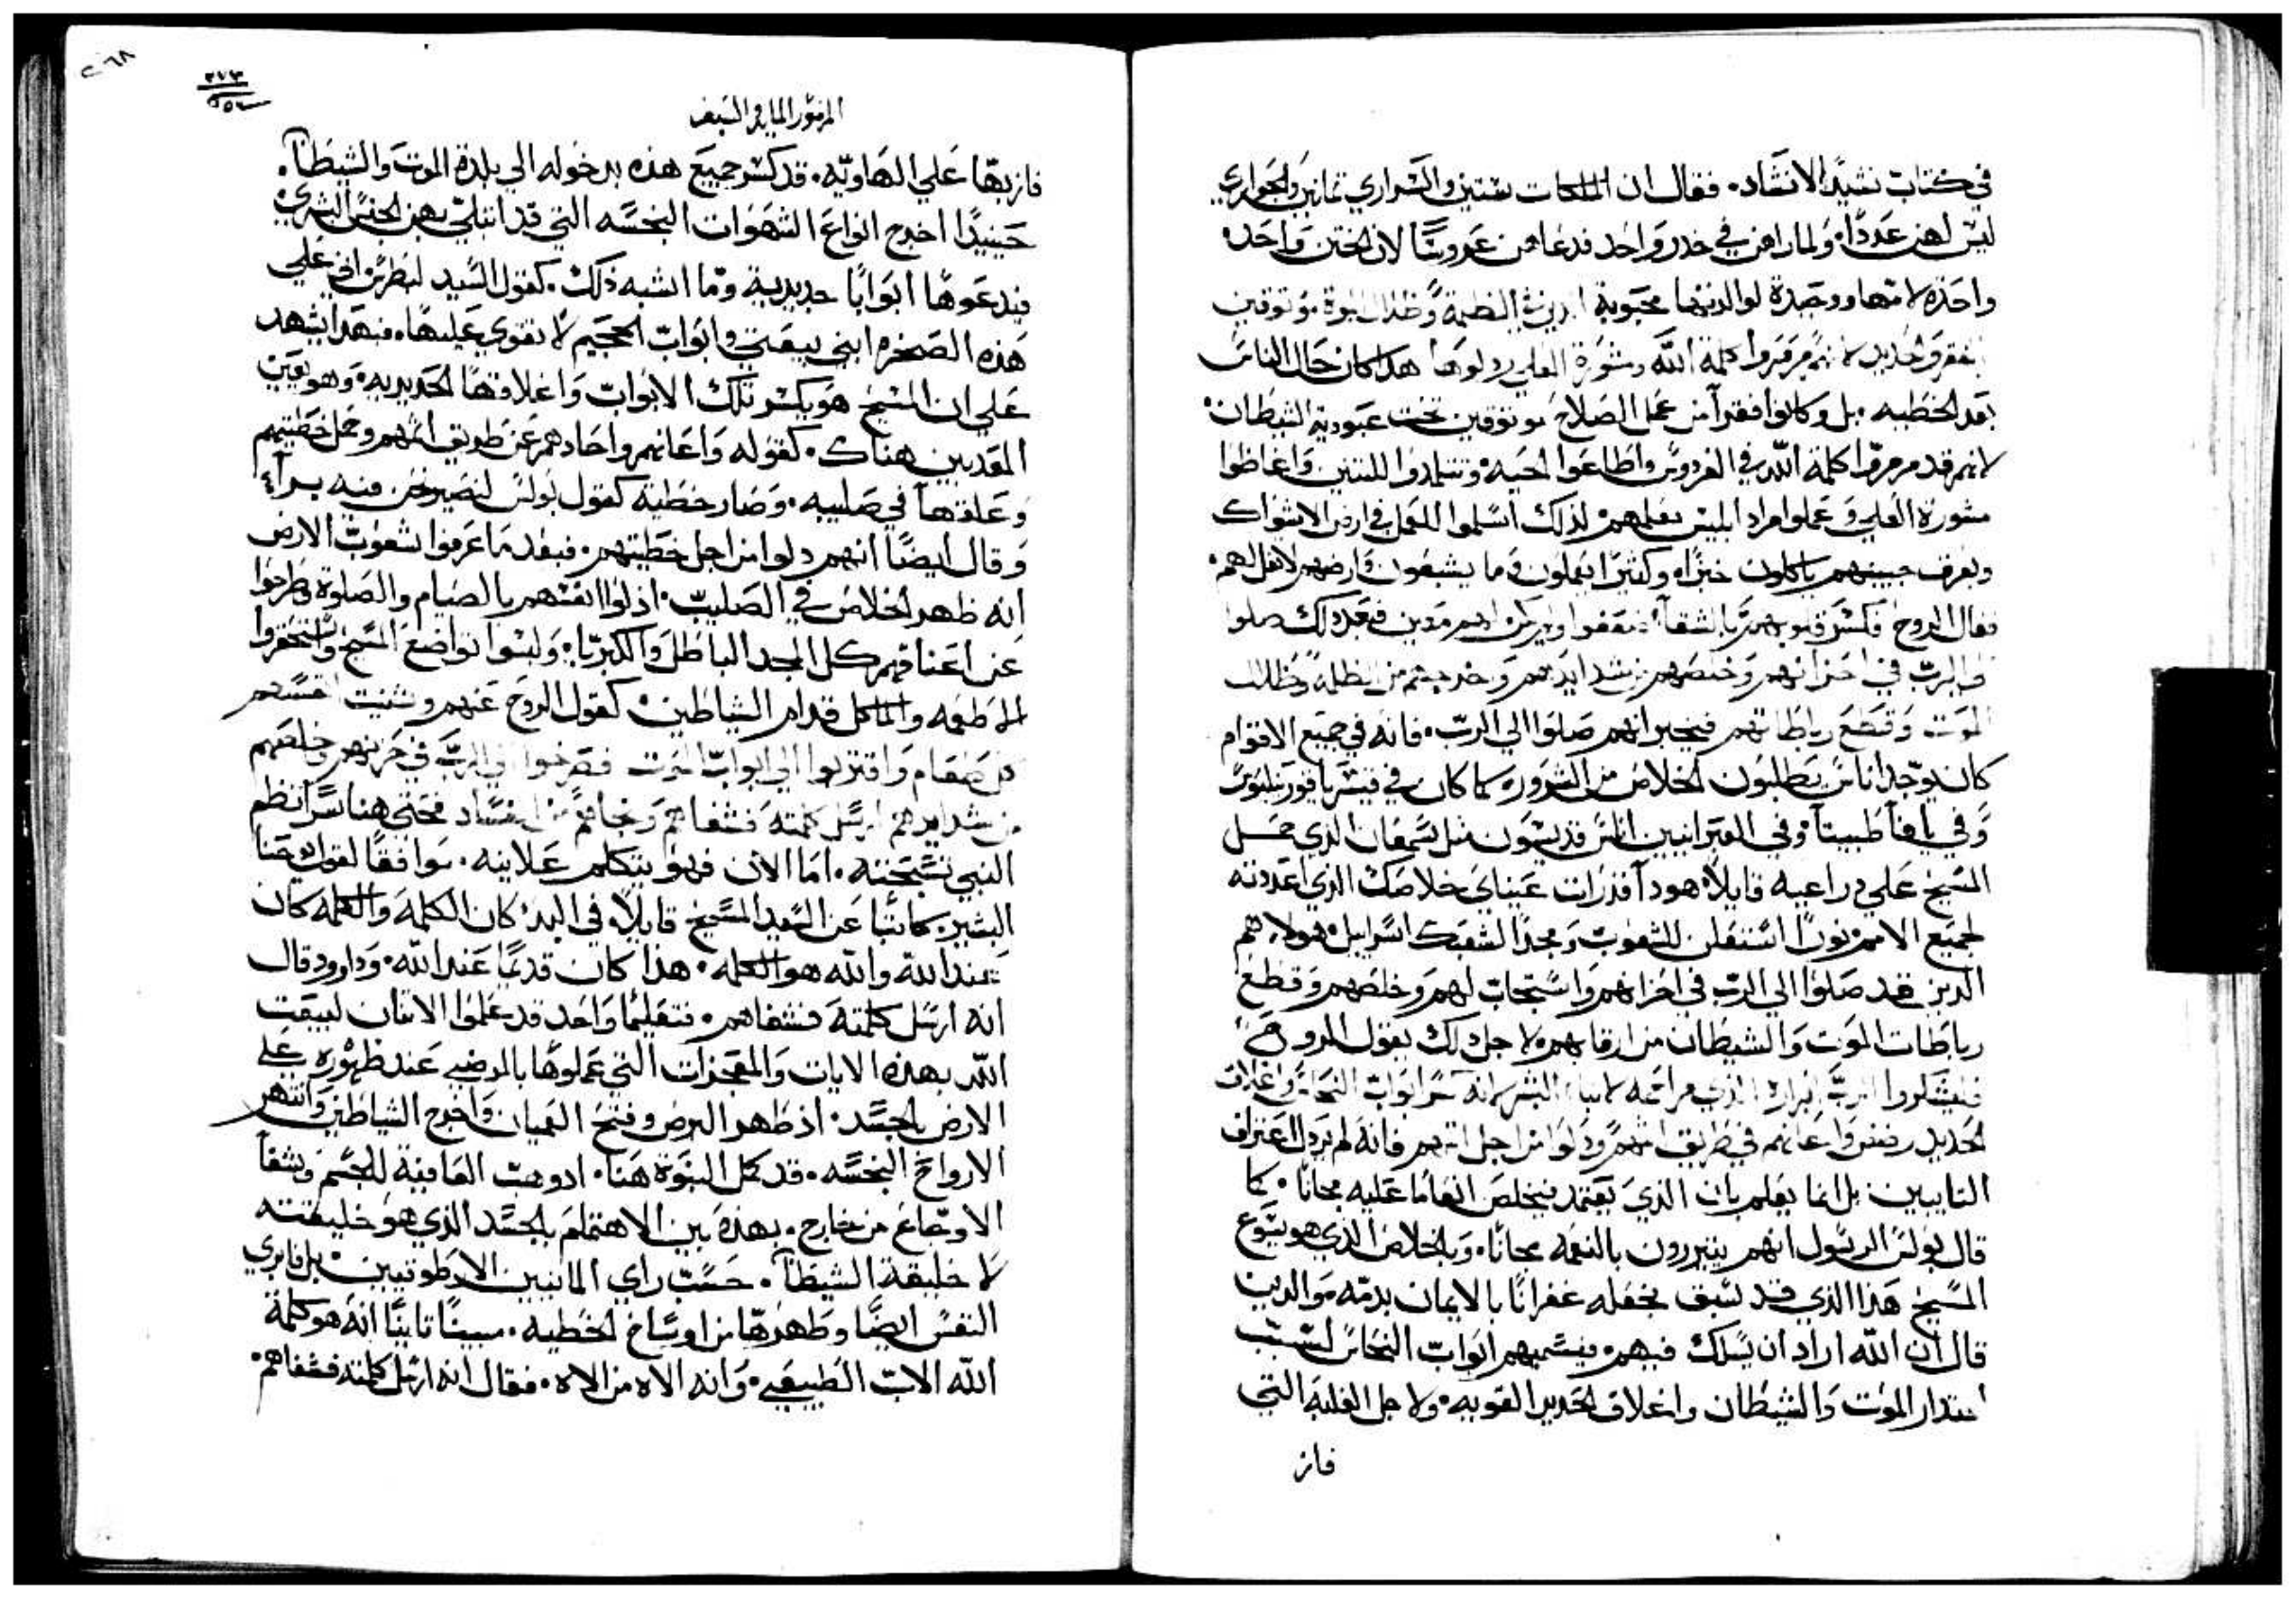 في كتاب نشيد الانشاد. فقال ان الملكات ستين والسراري تمانين والجواري
ليس لهن عددًا. ولما راهن في خدر واحد فدعاهن عروسًا لان الختن واحد.
واحده لامها ووحيدة لوالدتها محبوبة الظلمة وظلال موثوقين
بفقر وحديد لانهم مرمروا كلمة الله ومشورة العلي رذلوها هكذا كان حال الناس
بعد الخطيه. بل وكانوا فقرآ من عمل الصلاح موثوقين تحت عبودية الشيطان.
لانهم قد مرمروا كلمة الله في الفردوس واطاعوا الحيه. وتتلمدوا للتنين واغاظوا
مشورة العلي وعملوا مراد ابليس معلمهم. لذلك اسلموا للعمل في ارض الاشواك
وبعرف جبينهم ياكلون خبزًا. وكثيرًا يعملون وما يشبعون وارضهم لا تغل لهم.
فقال الروح فكسر قلوبهم بالشقآ ضعفوا ولم يكن لهم معين فبعد ذلك صلوا
الي الرب في احزانهم وخلصهم من شدايدهم واخرجهم من الظلمة وظلال
الموت وقطع رباطاتهم فيخبر انهم صلوا الي الرب. فانه في جميع الاقوام
كان يوجد اناس يطلبون الخلاص من الشرور. كما كان في قيسريا قورنيليوس
وفي يافا طبيتآ وفي العبرانيين اناس قديسون مثل سمعان الذي حمل
المسيح علي دراعيه قايلاً. هودا قد رات عيناي خلاصك الذي اعددته
لجميع الامم. نورًا استعلن للشعوب ومجدًا لشعبك اسراييل. هولاي هم
الدين قد صلوا الي الرب في احزانهم واستجاب لهم وخلصهم وقطع
رباطات الموت والشيطان من ارقابهم. لاجل دلك يقول الروح
فليشكروا الرب الذي مراحمه لابناء البشر لانه كسر ابواب النحاس واغلاق
الحديد رضض واعانهم في طريق اثمهم ودلوا من اجل اتمهم فانه لم يرذل اعتراف
التايبين بل انما يعلم بان الذي يعتمد فيخلص انعامًا عليه مجانًا. كما
قال بولس الرسول انهم يتبررون بالنعمه مجانًا. وبالخلاص الذي هو يسوع
المسيح هذا الذي قد سبق فجعله غفرانًا بالايمان بدمه. والدين
قال ان الله اراد ان يسلك فيهم. فيسميهم ابواب النحاس لسبب
اقتدار الموت والشيطان واغلاق الحديد القويه. ولاجل الغلبه التي
فاز
٢٦٨
٢٧٣
المزمور المايه والسبعه
فاز بها علي الهاويه. قد كسر جميع هذه بدخوله الي بلدة الموت والشيطآن.
حينيدًا اخرج انواع الشهوات النجسه التي قد ابتلي بهن الجنس البشري
فيدعوها ابوابًا حديدية وما اشبه ذلك. كقول السيد لبطرس اني علي
هذه الصخره ابني بيعتي وابواب الجحيم لا تقوي عليها. فبهدا يشهد
علي ان المسيح هو يكسر تلك الابواب واغلاقها الحديديه. وهو يعين
المعدبين هناك. كقوله واعانهم واحادهم عن طريق اثمهم وحمل خطيتهم
وعلقها في صليبه. وصار خطية كقول بولس لنصير نحن فيه برآ.
وقال ايضًا انهم دلوا من اجل خطيتهم. فبعد ما عرفوا شعوب الارض
انه ظهر الخلاص في الصليب. اذلوا انفسهم بالصيام والصلوة وطرحوا
عن اعناقهم كل المجد الباطل والكبريا. ولبسوا تواضع المسيح واستحقروا
الاطعمه والماكل قدام الشياطين. كقول الروح عنهم وشنيت انفسهم
كل طعام واقتربوا الي ابواب الموت فصرخوا الي الرب في حزنهم وخلصهم
من شدايدهم ارسل كلمته فشفاهم ونجاهم من الفساد فحتي هنا سرًا نظم
النبي تسبحته. اما الان فهو يتكلم علانيه. موافقًا لقول يوحنا
البشير كما تنبا عن السيد المسيح قايلاً. في البدء كان الكلمة والكلمه كان
عند الله والله هو الكلمه. هذا كان قدمًا عند الله. وداوود قال
انه ارسل كلمته فشفاهم. فتعليمًا واحد قد علموا الاثنان لبيعت
الله بهذه الايات والمعجزات التي عملوها بالمرضي عند ظهوره علي
الارض بالجسد. اذ طهر البرص وفتح العميان واخرج الشياطين وانتهر
الارواح النجسه. قد كمل النبوة هنا. ادوهب العافية للجسم وشفآ
الاوجاع من خارج. بهذه بين الاهتمام بالجسد الذي هو خليقته
لا خليقة الشيطآن. حسب راي المانيين الاراطوقيين. بل فابري
النفس ايضًا وطهرها من اوساخ الخطيه. مبينًا تابتًا انه هو كلمة
الله الاب الطبيعي. وانه الاه من الاه. فقال انه ارسل كلمته فشفاهم.